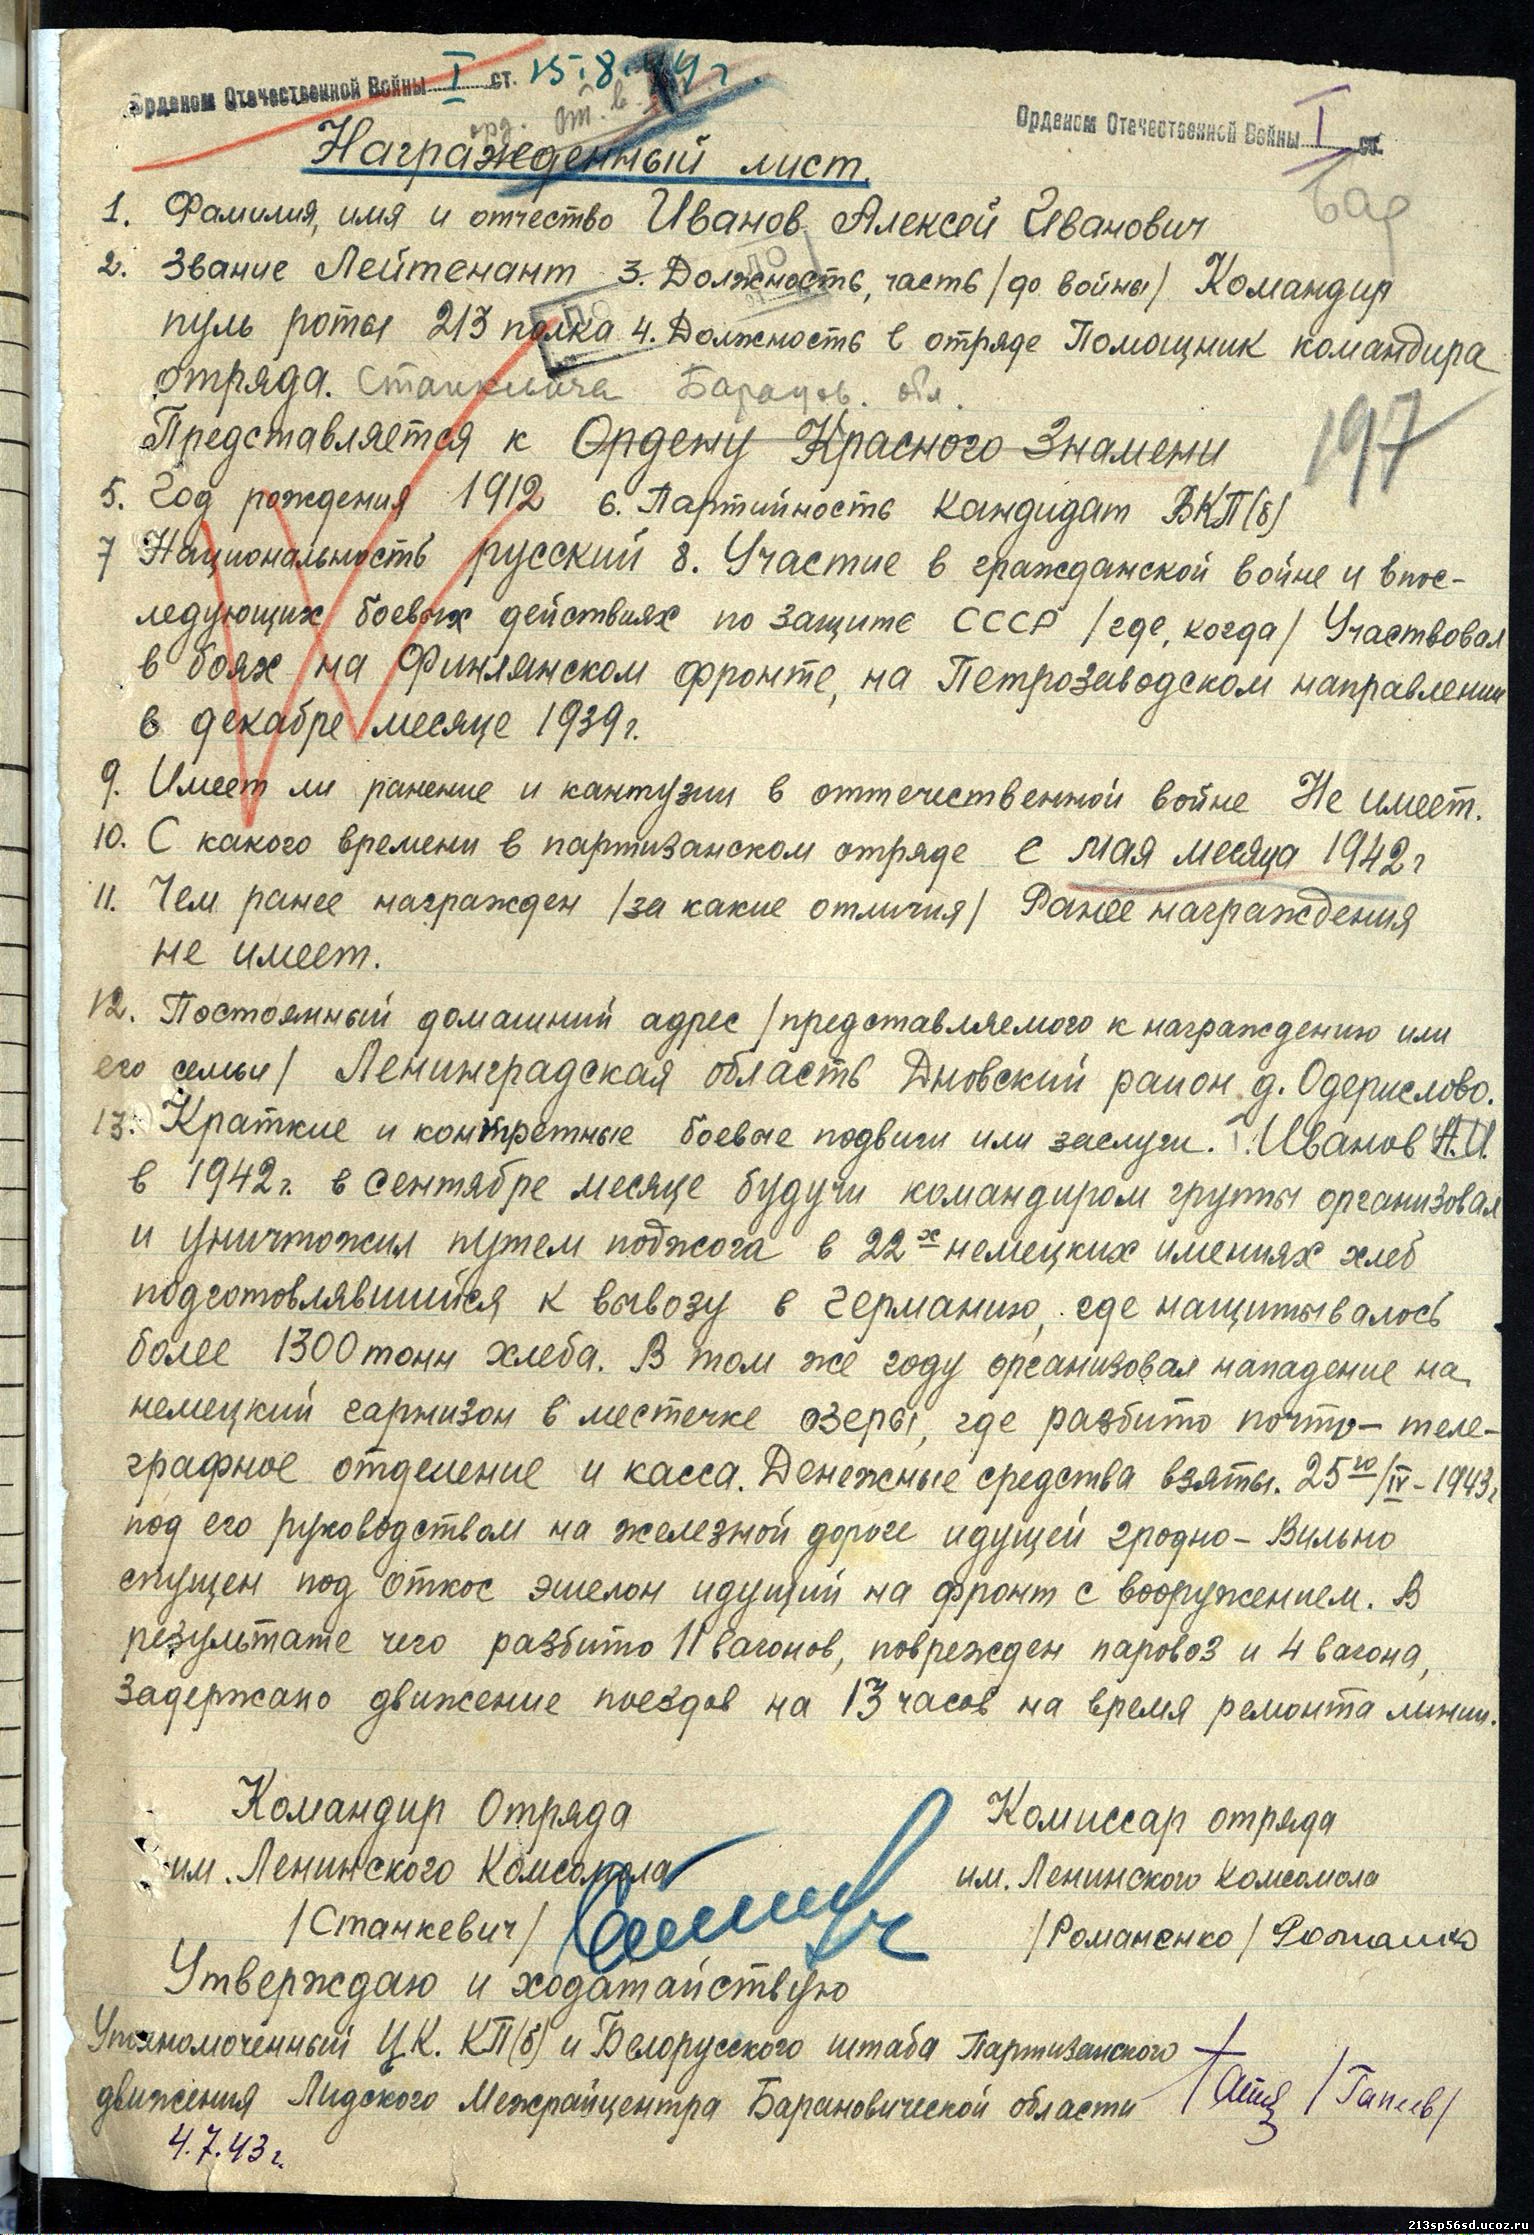 Орденом Отечественной Войны I ст. 15.8.44 г.
орд. От. в.
Орденом Отечественной Войны I ст.
Награжденный лист.
1. Фамилия, имя и отчество Иванов Алексей Иванович
2. Звание Лейтенант 3. Должность, часть /до войны/ Командир
пуль роты 213 полка 4. Должность в отряде Помощник командира
отряда. Станкевича Баранов. обл.
Представляется к Ордену Красного Знамени
197
5. Год рождения 1912 6. Партийность кандидат ВКП(б)
7 Национальность русский 8. Участие в гражданской войне и впос-
ледующих боевых действиях по защите СССР /где, когда/ Участвовал
в боях на Финлянском фронте, на Петрозаводском направлении
в декабре месяце 1939г.
9. Имеет ли ранение и кантузии в оттечественной войне Не имеет.
10. С какого времени в партизанском отряде с мая месяца 1942г
11. Чем ранее награжден /за какие отличия/ Ранее награждения
не имеет.
12. Постоянный домашний адрес /представляемого к награждению или
его семьи/ Ленинградская область Дновский раион д. Одерислово.
13. Краткие и контретные боевые подвиги или заслуги. Т. Иванов А.И.
в 1942г. в сентябре месяце будучи командиром группы организовал
и уничтожил путем поджога в 22х немецких имениях хлеб
подготовлявшийся к вывозу в Германию, где нащитывалось
более 1300 тонн хлеба. В том же году организовал нападение на
немецкий гарнизон в местечке озеры, где разбито почто-теле-
графное отделение и касса. Денежные средства взяты. 25го/IV-1943г
под его руководством на железной дороге идущей гродно-Вильно
спущен под откос эшелон идущий на фронт с вооружением. В
результате чего разбито 11 вагонов, поврежден паровоз и 4 вагона,
задержано движение поездов на 13 часов на время ремонта линии.
Командир Отряда
им. Ленинского Комсомола
/Станкевич/
Комиссар отряда
им. Ленинского комсомола
/Романенко/
Утверждаю и ходатайствую
Уполномоченный ЦК. КП(б) и Белорусского штаба Партизанского
движения Лидского Межрайцентра Барановической области /Гапеев/
4.7.43г.
213sp56sd.ucoz.ru